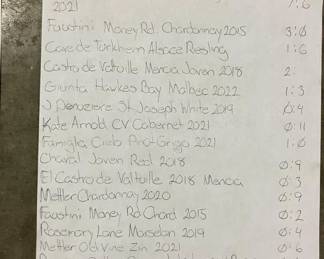 2021 7:6
Faustini Money Rd. Chardonnay 2015 3:0
Cave de Turkheim Alsace Riesling 1:6
Castro de Valtuille Mencia Joven 2018 2:
Giunta Hawkes Bay Malbec 2022 1:3
J Denuziere St. Joseph White 2019 0:4
Kate Arnold CV Cabernet 2021 0:11
Famiglia Pinot Grigo 2021 1:0
Joven Red 2018 0:9
El Castro de Valtuille 2018 Mencia 0:3
Mettler Chardonnay 2020 0:9
Faustini Money Rd Chard 2015 0:2
Rosemary Lane Marselan 2019 0:4
Mettler Old Vine Zin 2021 0:6